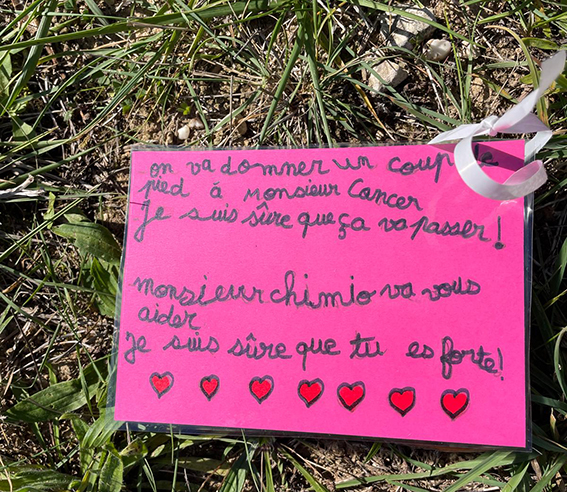 on va domner un coup de
pied à Monsieur Cancer
Je suis sûre que ça va passer !
monsieur chimio va vous
aider
Je suis sûre que tu es forte !